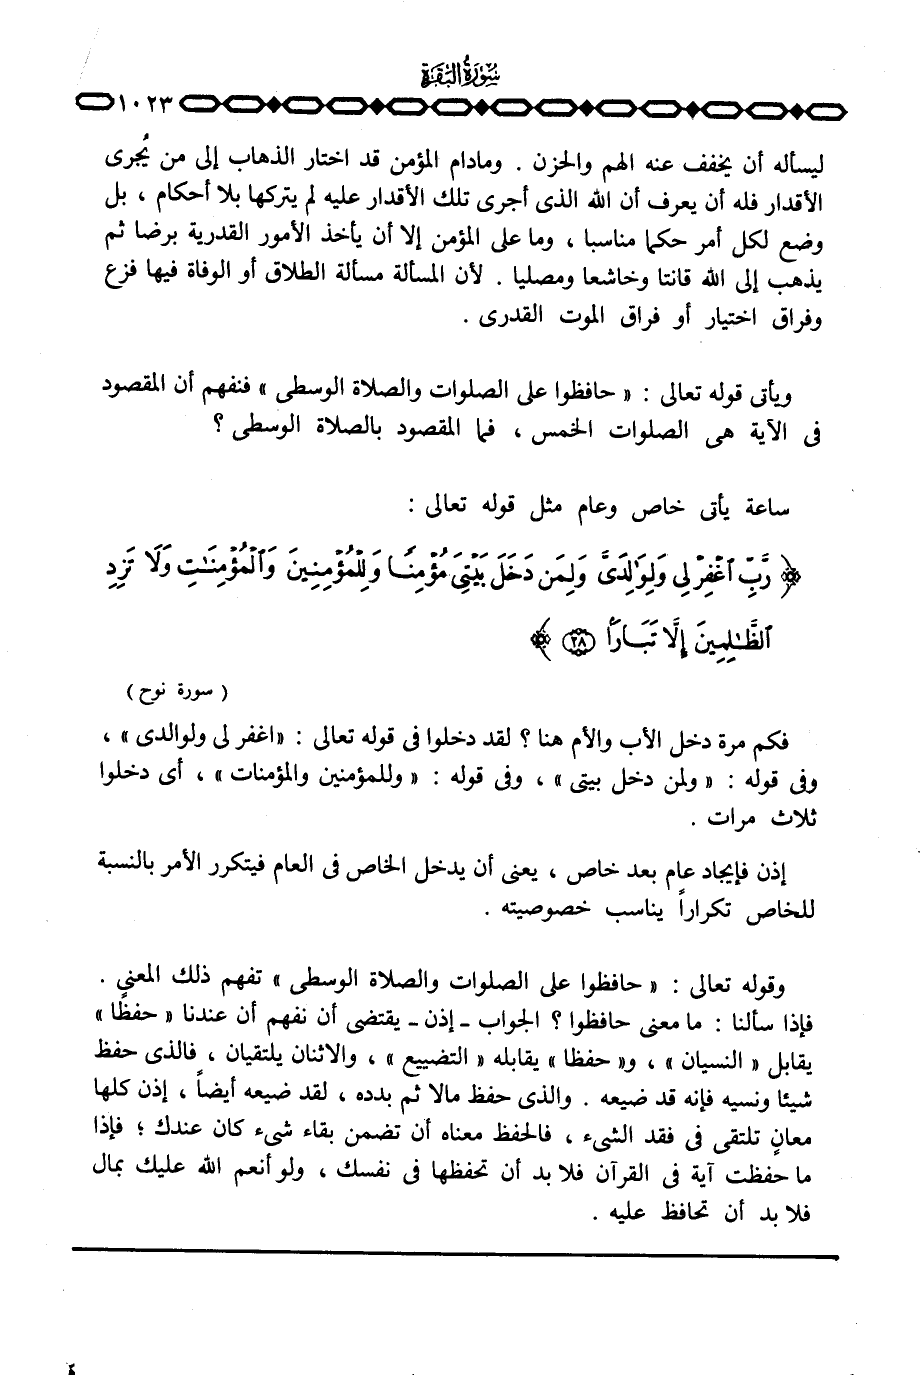 سُورَةُ البَقَرَة
١٠٢٣
ليسأله أن يخفف عنه الهم والحزن . ومادام المؤمن قد اختار الذهاب إلى من يُجرى
الأقدار فله أن يعرف أن الله الذى أجرى تلك الأقدار عليه لم يتركها بلا أحكام ، بل
وضع لكل أمر حكما مناسبا ، وما على المؤمن إلا أن يأخذ الأمور القدرية برضا ثم
يذهب إلى الله قانتا وخاشعا ومصليا . لأن المسألة مسألة الطلاق أو الوفاة فيها فزع
وفراق اختيار أو فراق الموت القدرى .
ويأتى قوله تعالى : « حافظوا على الصلوات والصلاة الوسطى » فنفهم أن المقصود
فى الآية هى الصلوات الخمس ، فما المقصود بالصلاة الوسطى ؟
ساعة يأتى خاص وعام مثل قوله تعالى :
﴿ رَّبِّ ٱغْفِرْ لِى وَلِوَٰلِدَىَّ وَلِمَن دَخَلَ بَيْتِىَ مُؤْمِنًا وَلِلْمُؤْمِنِينَ وَٱلْمُؤْمِنَٰتِ وَلَا تَزِدِ
ٱلظَّٰلِمِينَ إِلَّا تَبَارًۢا ٢٨ ﴾
( سورة نوح )
فكم مرة دخل الأب والأم هنا ؟ لقد دخلوا فى قوله تعالى : «اغفر لى ولوالدى» ،
وفى قوله : « ولمن دخل بيتى » ، وفى قوله : « وللمؤمنين والمؤمنات » ، أى دخلوا
ثلاث مرات .
إذن فإيجاد عام بعد خاص ، يعنى أن يدخل الخاص فى العام فيتكرر الأمر بالنسبة
للخاص تكراراً يناسب خصوصيته .
وقوله تعالى : « حافظوا على الصلوات والصلاة الوسطى » تفهم ذلك المعنى .
فإذا سألنا : ما معنى حافظوا ؟ الجواب ـ إذن ـ يقتضى أن نفهم أن عندنا « حفظًا »
يقابل « النسيان » ، و« حفظا » يقابله « التضييع » ، والاثنان يلتقيان ، فالذى حفظ
شيئا ونسيه فإنه قد ضيعه . والذى حفظ مالا ثم بدده ، لقد ضيعه أيضاً ، إذن كلها
معانٍ تلتقى فى فقد الشىء ، فالحفظ معناه أن تضمن بقاء شىء كان عندك ؛ فإذا
ما حفظت آية فى القرآن فلا بد أن تحفظها فى نفسك ، ولو أنعم الله عليك بمال
فلا بد أن تحافظ عليه .